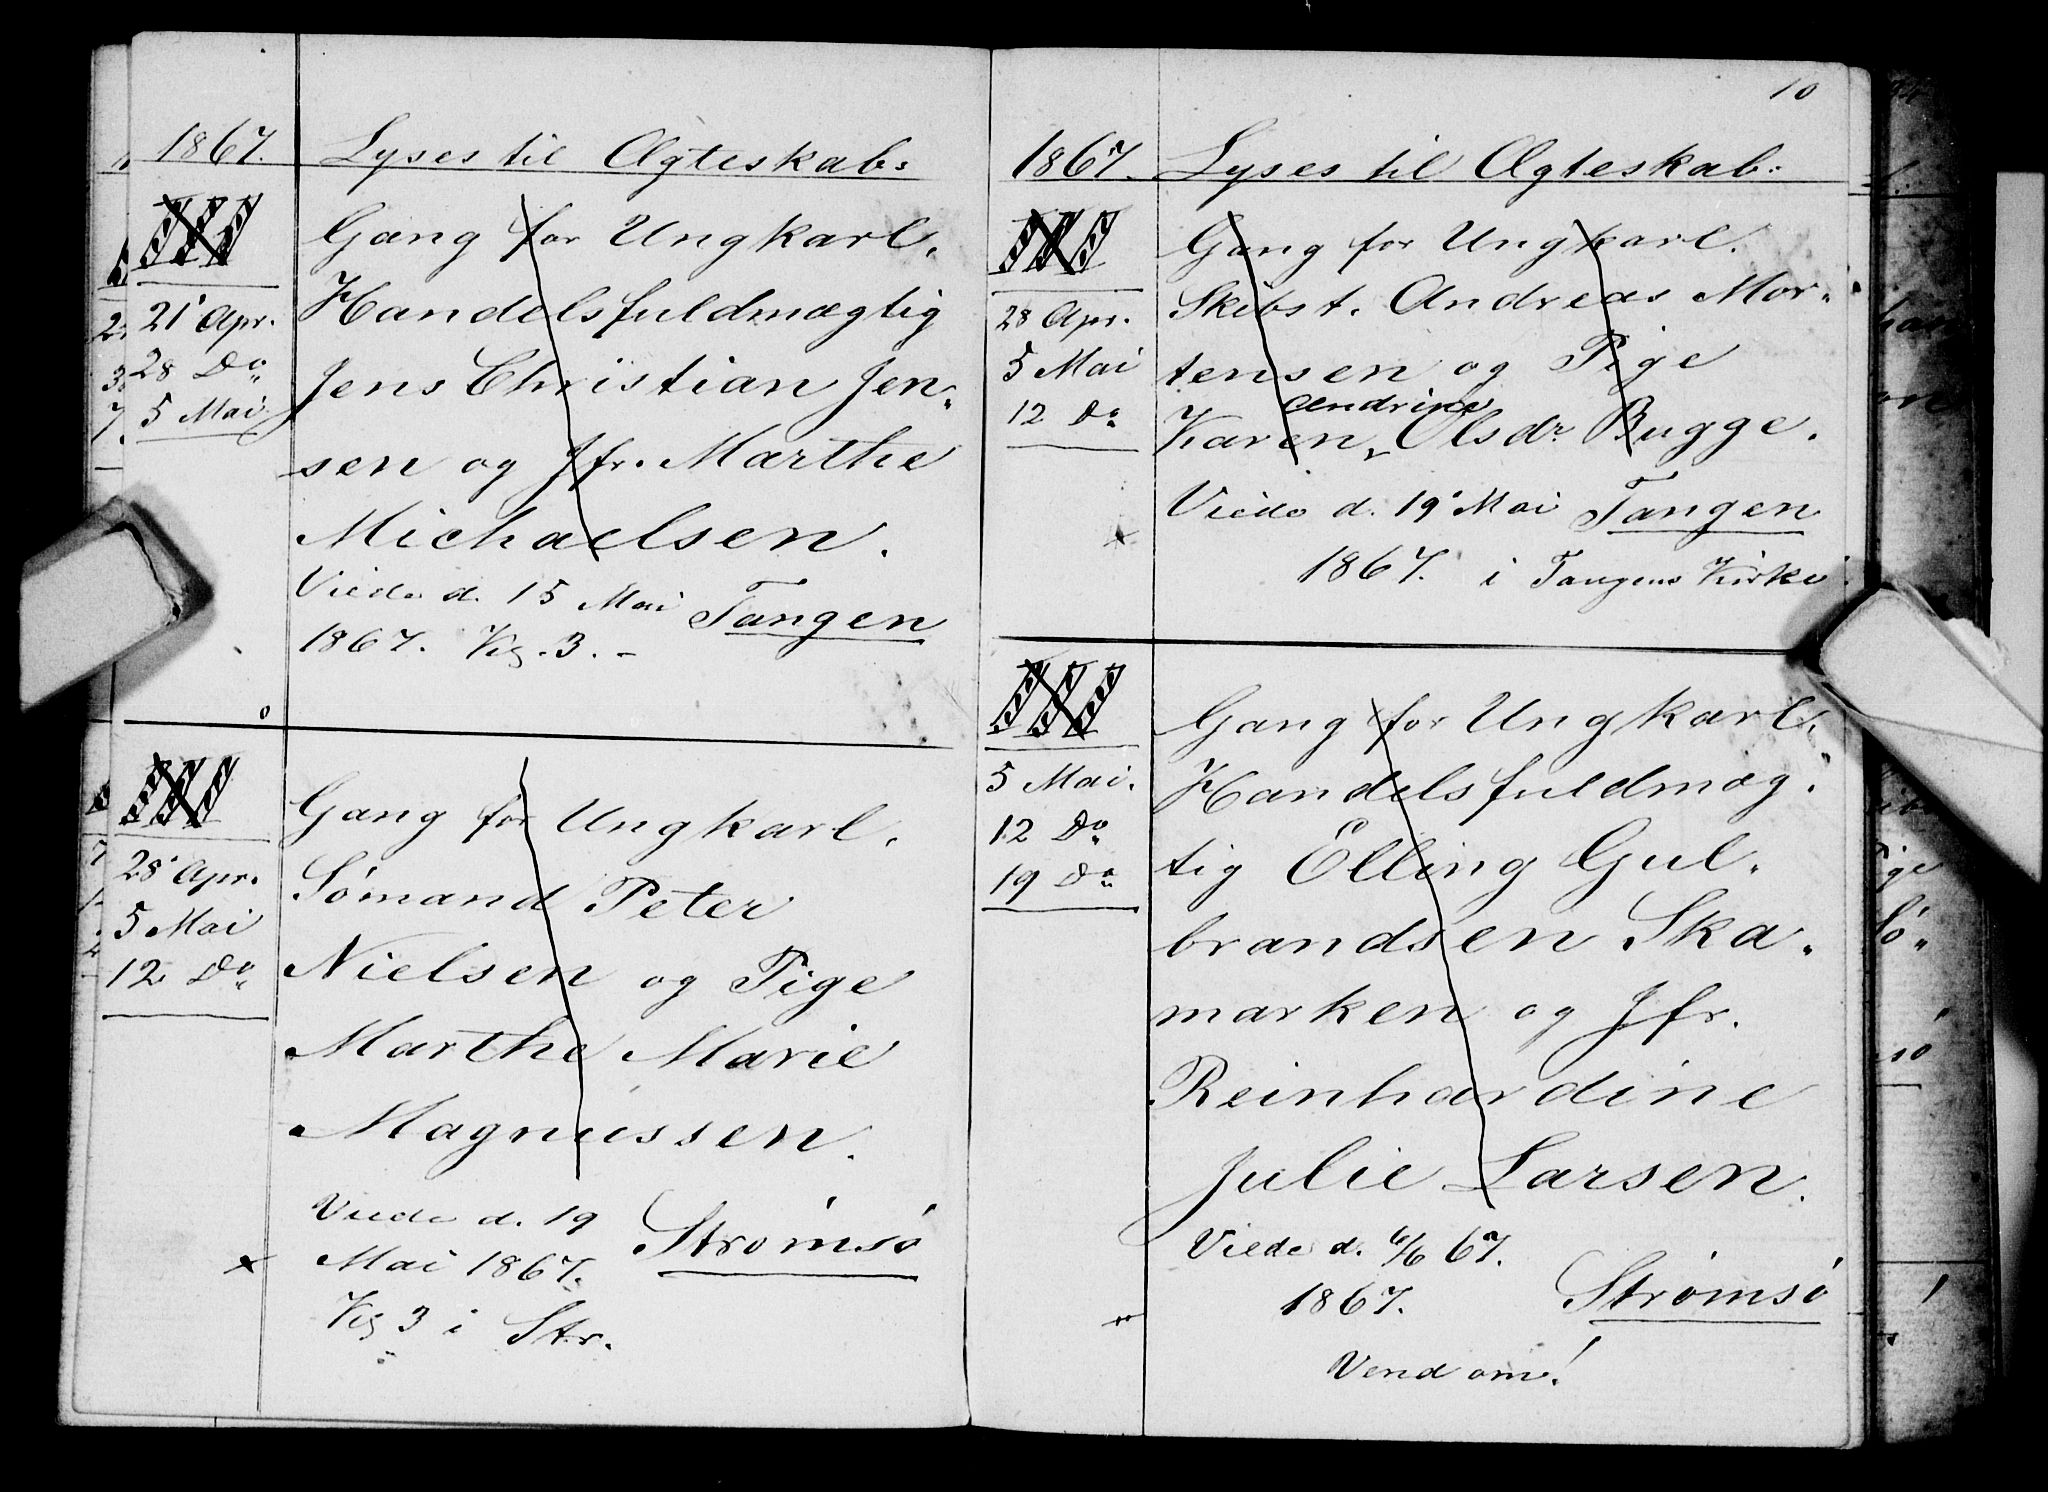 1867.
Lyses til Ægteskab:
III
Gang for Ungkarl.
21' Apr.
Handelsfuldmægtig
28 Do
Jens Christian Jen-
5 Mai
sen og Jfr. Marthe
Michaelsen.
Viede d. 15 Mai Tangen
1867. Kl. 3. -
III
Gang for Ungkarl.
28' Apr.
Sømand Peter
5 Mai
Nielsen og Pige
12 Do
Marthe Marie
Magnussen.
Viede d. 19 Strømsø
Mai 1867.
Kl 3 i Str.
10
1867.
Lyses til Ægteskab:
III
Gang for Ungkarl.
28 Apr.
Skibst. Andreas Mor-
5 Mai
tensen og Pige
Andrine
12 Do
Karen Olsdr Bugge.
Viede d. 19' Mai Tangen
1867. i Tangens Kirke.
III
Gang for Ungkarl.
5 Mai.
Handelsfuldmæg-
12 Do
tig Elling Gul-
19 Do
brandsen Ska-
marken og Jfr.
Reinhardine
Julie Larsen.
Viede d. 6/6 67.
1867. Strømsø
Vend om!